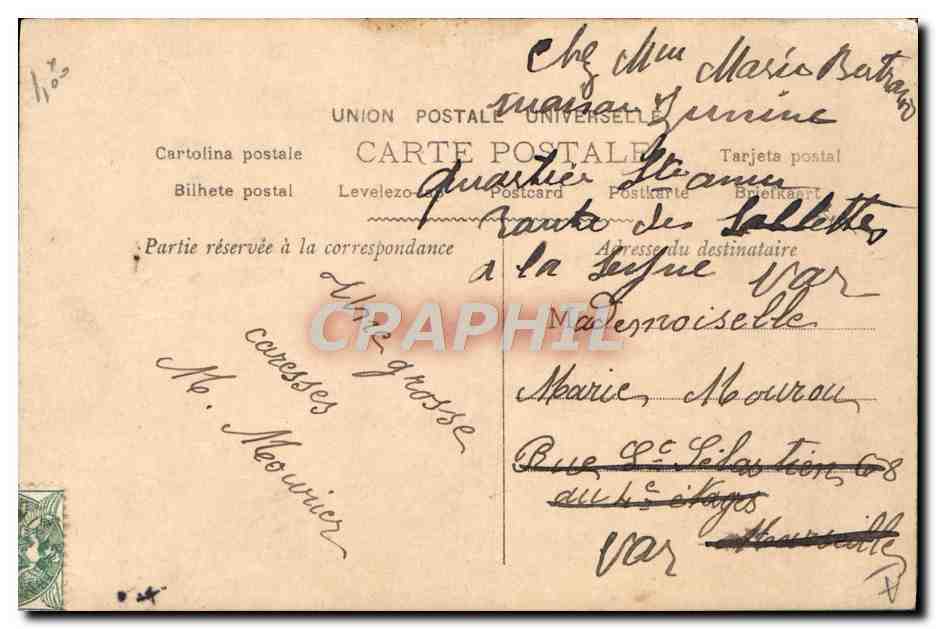 Chez Mme Marie Bertrand
maison
UNION POSTALE UNIVERSELLE
CARTE POSTALE
Cartolina postale
Tarjeta postal
Bilhete postal
Postcard
Postkarte
Briefkaart
quartier
route des Sablettes
Partie réservée à la correspondance
Adresse du destinataire
a la Seyne Var
Mademoiselle
Marie Mourou
Rue St Sébastien 68
au 4e étage
Var Marseille
Une grosse
caresses
M. Mourier
CRAPHIL